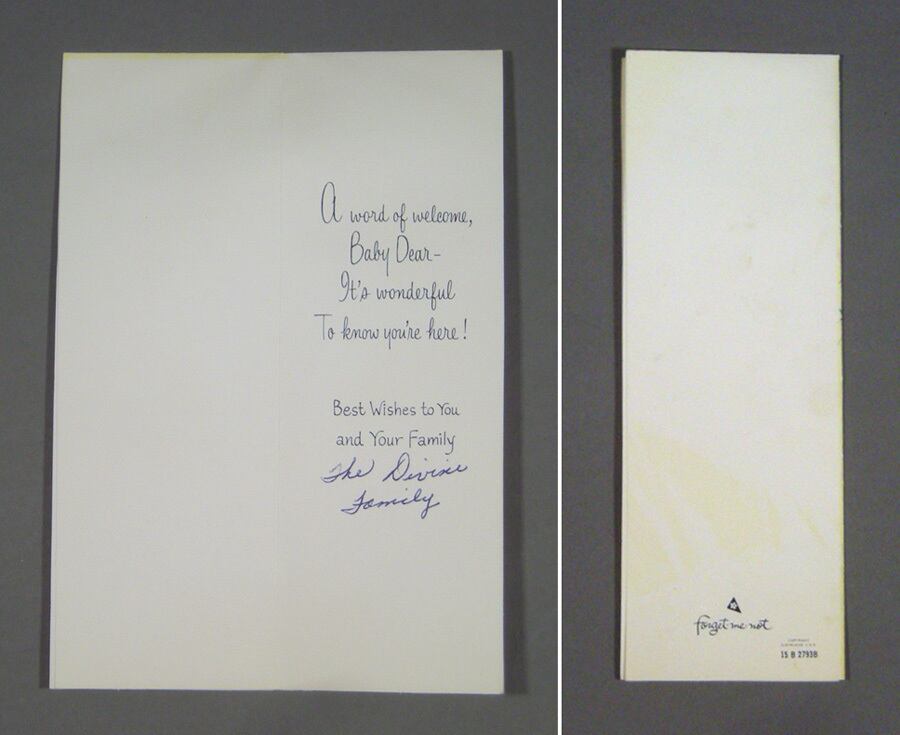 A word of welcome,
Baby Dear-
It's wonderful
To know you're here!
Best Wishes to You
and Your Family
The Divine
Family
forget me not
15 B 2793B